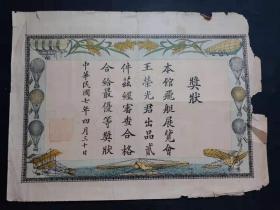 獎狀
本館飛艇展覽會
王榮光君出品貳
件茲經審查合格
合給最優等獎狀
中華民國七年四月三十日